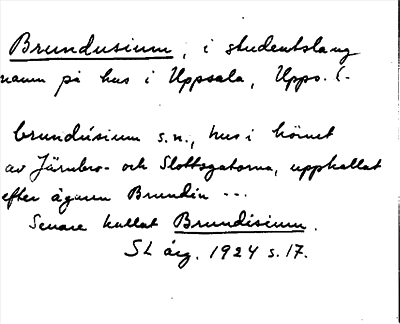 Brundusium, i studentslang
namn på hus i Uppsala, Upps. l.
brundúsium s.n., hus i hörnet
av Järnbro- och Slottsgatorna, uppkallat
efter ägaren Brundin ---
Senare kallat Brundisium.
SL årg. 1924 s. 17.